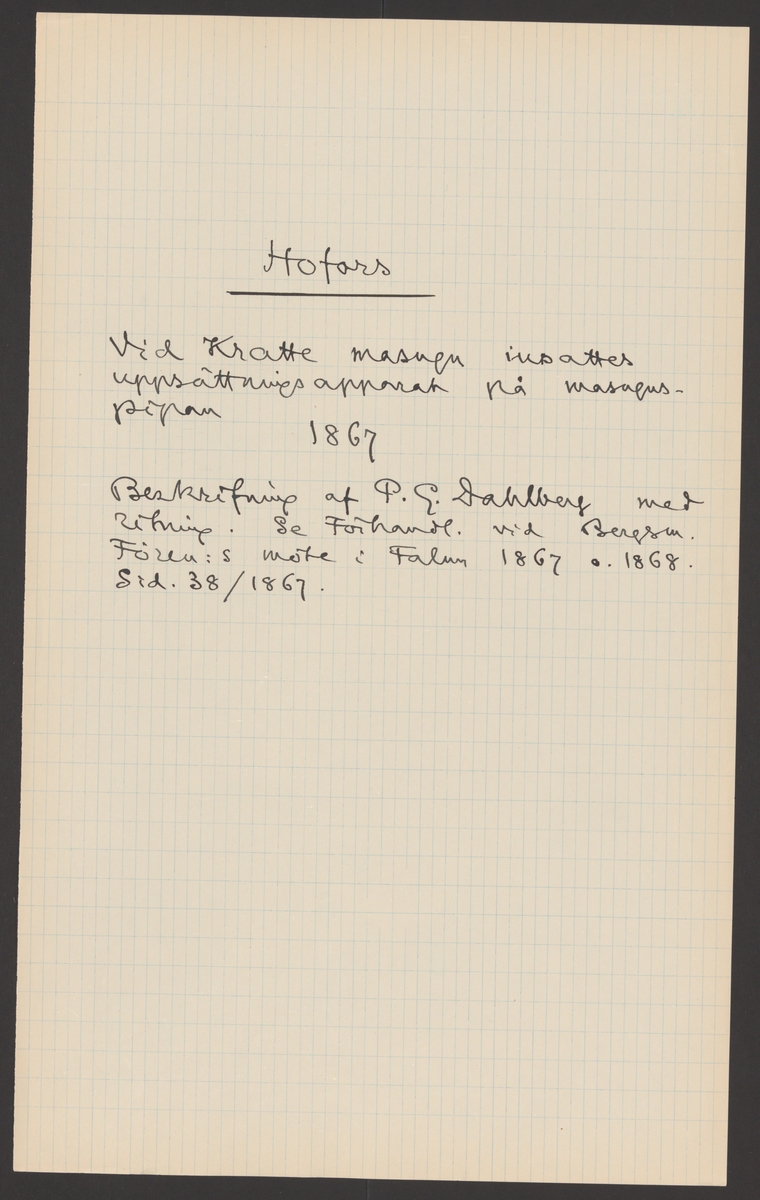 Hofors
Vid Kratte masugn insattes
uppsättningsapparat på masugns-
pipan
1867
Beskrifning af P. G. Dahlberg med
ritning. Se Förhandl. vid Bergsm.
Fören:s möte i Falun 1867 o. 1868.
Sid. 38/1867.